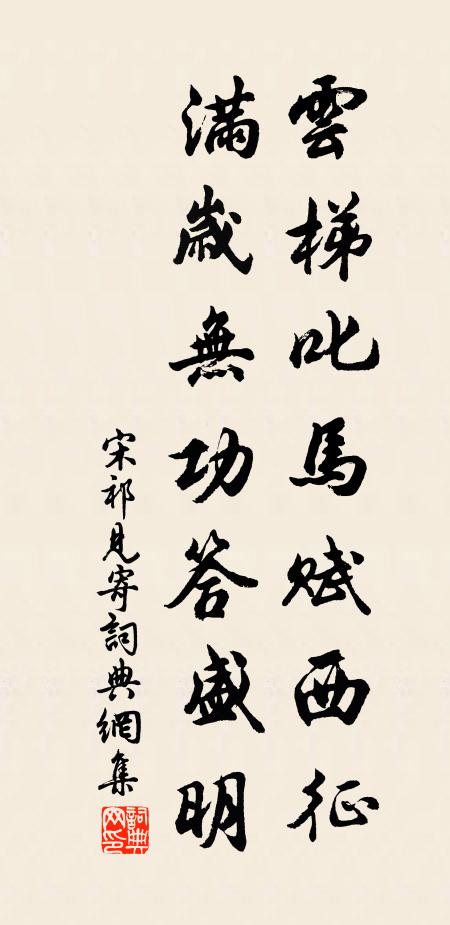 雲梯叱馬賦西征
滿歲無功答盛明
宋祁見寄詞典網集
詞典網印